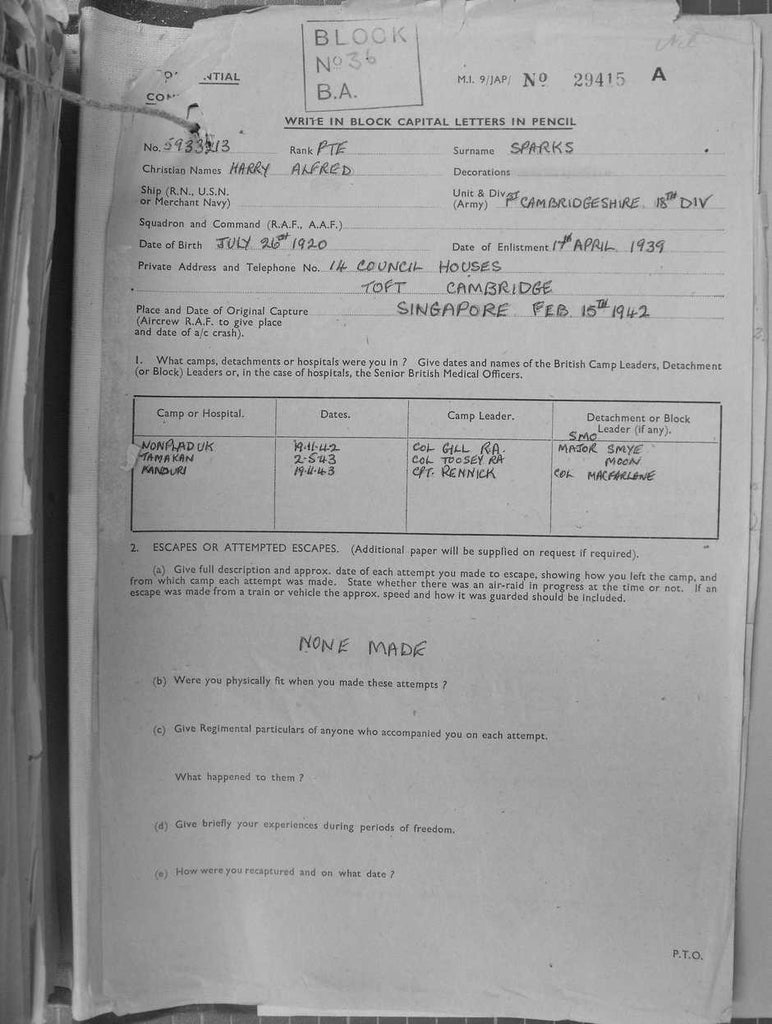 BLOCK
Nº 36
B.A.
M.I. 9/JAP/ Nº 29415 A
WRITE IN BLOCK CAPITAL LETTERS IN PENCIL
No. Rank PTE Surname SPARKS
Christian Names HARRY ALFRED Decorations
Ship (R.N., U.S.N.
or Merchant Navy)
Unit & Div.
(Army) 1ST CAMBRIDGESHIRE 18TH DIV
Squadron and Command (R.A.F., A.A.F.)
Date of Birth JULY 26TH 1920 Date of Enlistment 17TH APRIL 1939
Private Address and Telephone No. 14 COUNCIL HOUSES
TOFT CAMBRIDGE
Place and Date of Original Capture SINGAPORE FEB. 15TH 1942
(Aircrew R.A.F. to give place
and date of a/c crash).
1. What camps, detachments or hospitals were you in ? Give dates and names of the British Camp Leaders, Detachment
(or Block) Leaders or, in the case of hospitals, the Senior British Medical Officers.
Camp or Hospital. Dates. Camp Leader. Detachment or Block
Leader (if any).
SMO
NONPLADUK 19-11-42 COL GILL RA. MAJOR SMYE
TAMAKAN 2-5-43 COL TOOSEY RA MOON
KANDURI CPT. RENNICK COL MACFARLANE
2. ESCAPES OR ATTEMPTED ESCAPES. (Additional paper will be supplied on request if required).
(a) Give full description and approx. date of each attempt you made to escape, showing how you left the camp, and
from which camp each attempt was made. State whether there was an air-raid in progress at the time or not. If an
escape was made from a train or vehicle the approx. speed and how it was guarded should be included.
NONE MADE
(b) Were you physically fit when you made these attempts ?
(c) Give Regimental particulars of anyone who accompanied you on each attempt.
What happened to them ?
(d) Give briefly your experiences during periods of freedom.
(e) How were you recaptured and on what date ?
P.T.O.